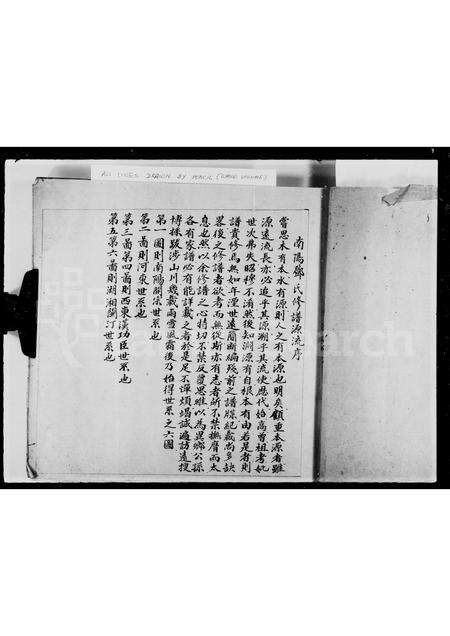 ALL LINES DRAWN BY PENCIL (WHOLE VOLUME)
南陽鄧氏修譜源流序
嘗思木有本水有源則人之有本源也明矣顧重本源者雖
源遠流長亦必追乎其源溯乎其流使歷代始高曾祖考妣
世次弗失昭穆不淆然後知淵源有自根本有由若是者則
譜貴修焉無如年湮世遠簡斷編殘前之譜牒紀載尚多缺
畧後之修譜者欲考而無從斯亦有志者所不禁撫膺而太
息也然以余修譜之心持切不禁反覆思維以為異鄉公孫
各有家譜必有能詳載之者於是足不憚煩竭誠遍訪遠搜
博採跋涉山川幾載雨雪風霜後乃始得世系之六圖
第一圖則南陽開宗世系也
第二啚則河東世系也
第三啚第四啚則西東漢功臣世系也
第五第六啚則湖湘閩汀世系也